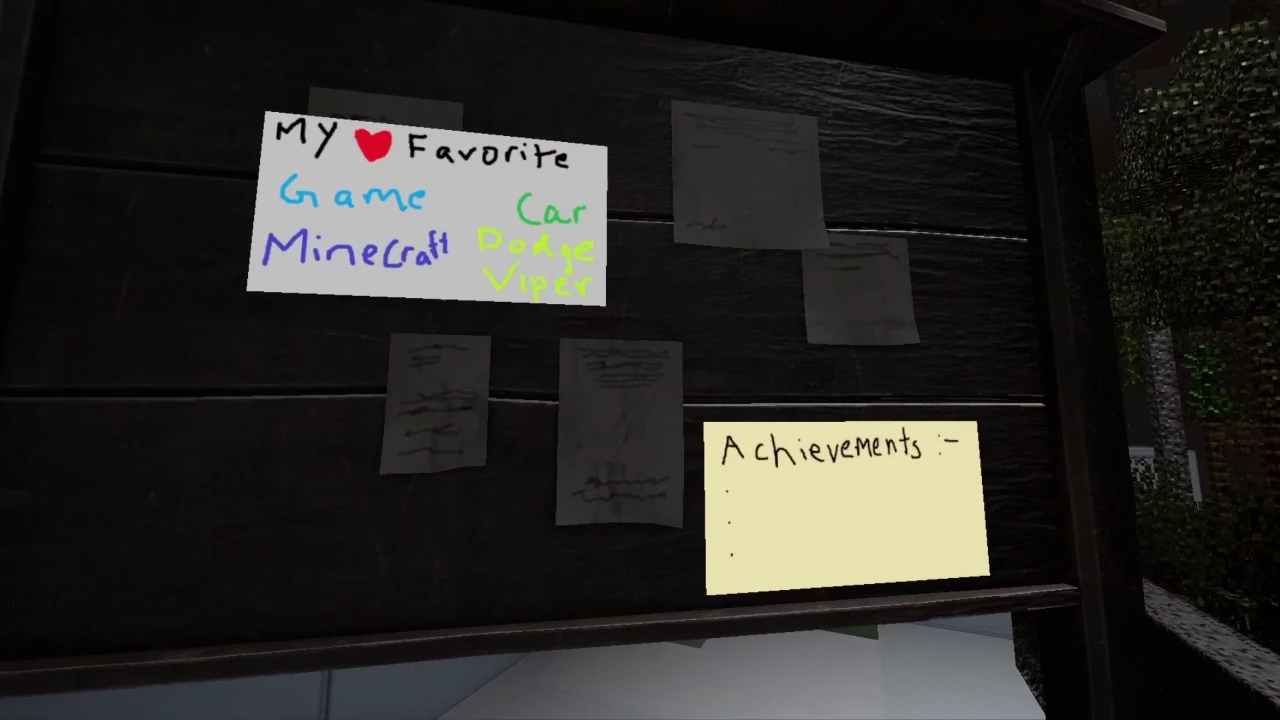 MY ❤ Favorite
Game
Car
MineCraft
Dodge
Viper
Achievements :-
.
.
.